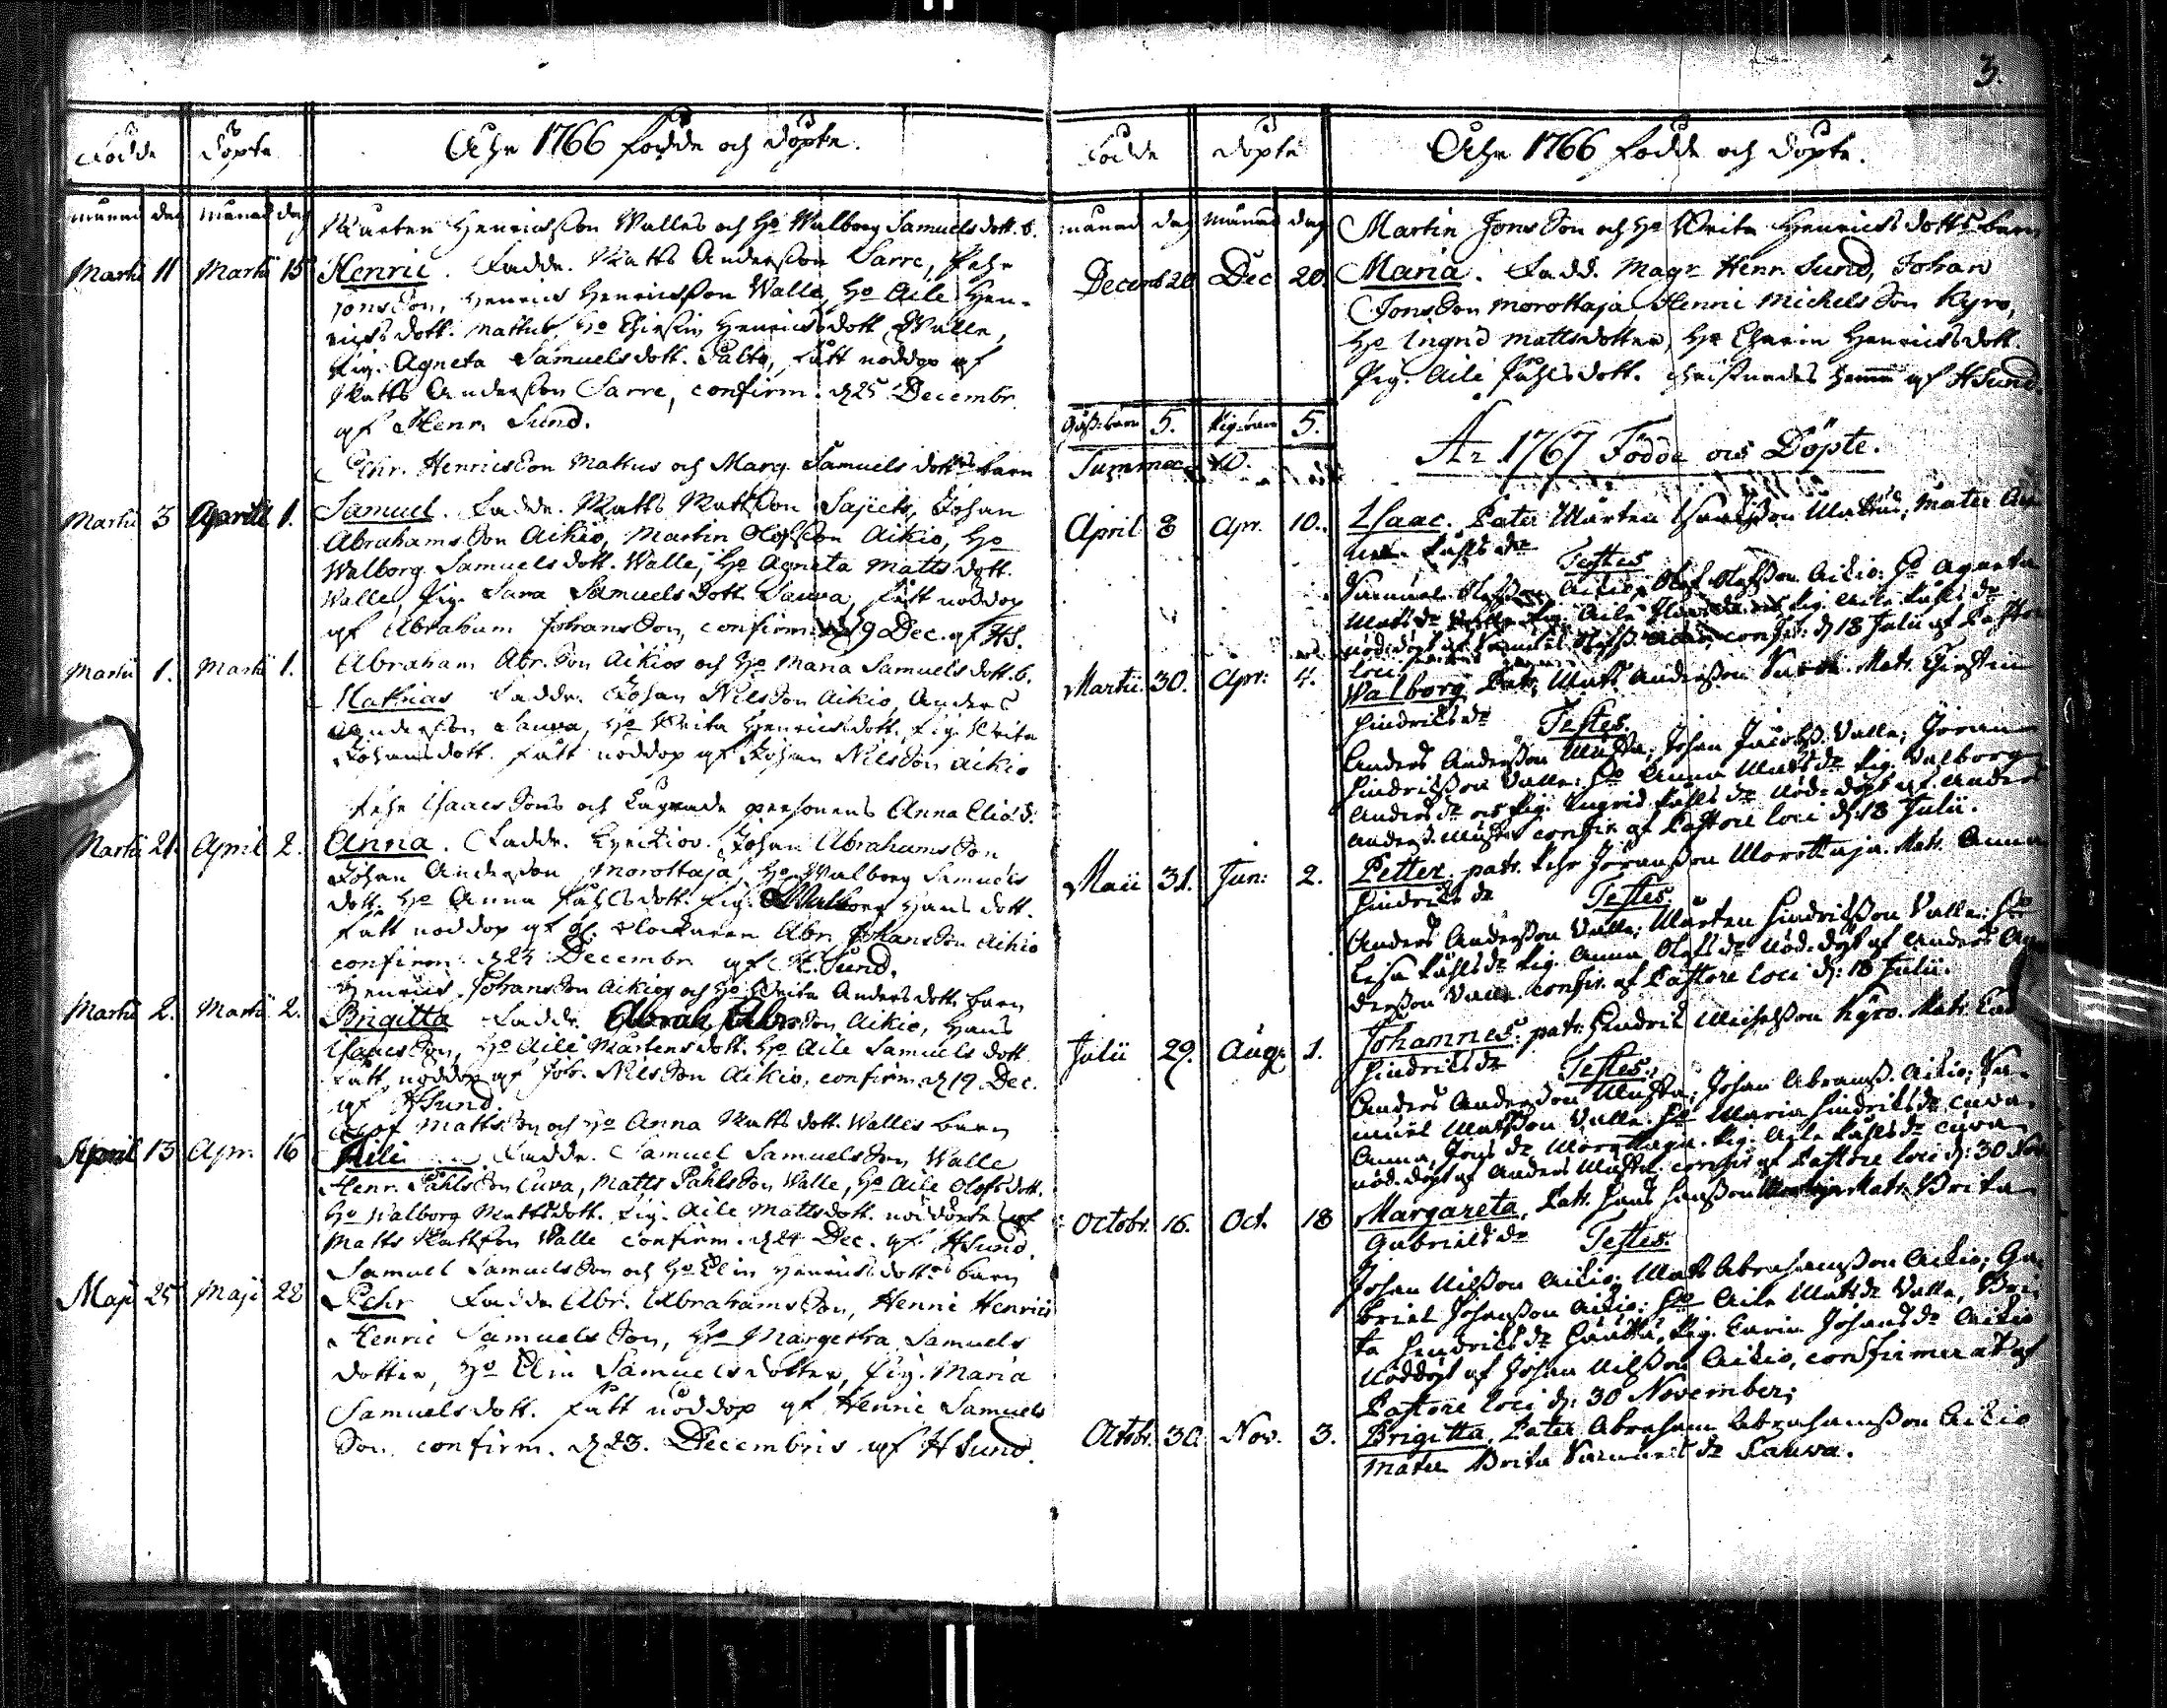 Födde
Döpte
Åhr 1766 födde och döpte.
månad dag månad dag
Mårten Henrichsson Walles och Ho Walborg Samuels dott. b.
Martii 11 Martii 15 Henric. Fadde. Matts Andersson Sarre, Pehr
Jonsson, Henrich Henrichsson Walle, Ho Aile Hen-
richs dott. Mattus, Ho Chirstin Henrichsdott Walle,
Pig. Agneta Samuelsdott. fått nöddop af
Matts Andersson Sarre, confirm. d 25 Decembr.
af Henr. Sund.
Henricsson Mattus och Marg. Samuels dotts barn
Martii 3 Aprill 1. Samuel. Fadde. Matts Mattsson Sajiets, Johan
Abrahamsson Aikio, Martin Olofsson Aikio, Ho
Walborg Samuelsdott. Walle, Ho Agneta Mattsdott.
Walle, Pig. Sara Samuelsdott. Sauwa, fått nöddop
af Abraham Johansson, confirm. 19 Dec. af HS.
Abraham Abr.son Aikios och Ho Maria Samuelsdott. b.
Martii 1. Martii 1. Mathias Fadde. Johan Nilsson Aikio, Anders
Andersson Sauwa, Ho Brita Henricsdott. Pig. Brita
Johansdott. fått nöddop af Johan Nilsson Aikio
Pehr Isaacssons och Lägrade personens Anna Eliæ d.
Martii 21. April 2. Anna. Fadde. Johan Abrahamsson
Johan Andersson Morottaja, Ho Walborg Samuels
dott. Ho Anna Påhlsdott. Pig. Walborg Hansdott.
fått nöddop af klockaren Abr. Johansson Aikio
confirm. d 23 Decembr. af H. Sund.
Henrics Johansson Aikios och Ho Brita Andersdotts barn
Martii 2. Martii 2. Brigitta Fadde. Abrah. Abr.son Aikio, Hans
Isaacsson, Ho Aile Mårtensdott. Ho Aile Samuelsdott
fått nöddop af Joh. Nilsson Aikio, confirm. d 19 Dec.
af HSund
Olof Mattsson och Ho Anna Matts dott. Walles barn
April 13 Apr. 16 Aili. Fadde. Samuel Samuelsson Walle
Henr. Påhlsson Cuva, Matts Påhlsson Walle, Ho Aile Olofsdott.
Ho Walborg Mattsdott. Pig. Aile Mattsdott. nöddöpte af
Matts Mattsson Walle confirm. d 24 Dec. af HSund.
Samuel Samuelsson och Ho Elin Henricsdotts barn
Maji 25 Maji 28 Pehr Fadde. Abr. Abrahamsson, Henric Henrics
Henric Samuelsson, Ho Margetha Samuels
dotter, Ho Elin Samuelsdotter, Pig. Maria
Samuelsdott. fått nöddop af Henric Samuels
son confirm. d 23. Decembris af HSund.
3.
Födde
Döpte
Åhr 1766 födde och döpte.
månad dag månad dag
Martin Jonsson och Ho Brita Henrichs dotts barn
Decemb 20 Dec 20. Maria. Fadd. Magr Henr. Sund, Johan
Jonsson Morottaja, Henric Michelsson Kyro,
Ho Ingrid Mattsdotter, Ho Charin Henricsdott.
Pig. Aile Påhlsdott. christnades hemma af HSund.
Goss:barn 5. Pig:barn 5.
Summa 10.
År 1767 Födde och Döpte.
April 8 Apr. 10. Isaac. Pater Mårten Isacsson Mattus, Mater An
na Påhls dr Testes
Samuel Olofsson Aikio, Olof Olofsson Aikio: Ho Agneta
Matts dr Walle Pig. Aile Pig. Aile Påhls dr
nöd:döpt af Samuel Olofss Aikio, confir: d 18 Julii af Pastore
loci.
Martii 30. Apr: 4. Walborg Patr. Matts Andersson Sarre. Matr. Chirstin
Hindrics dr Testes
Anders Andersson Musta, Johan Jacobss. Valle, Jöran
Hindrichsson Valle: Ho Anna Matts dr Pig. Valborg
Anders dr och Pig. Ingrid Påhls dr nöd: döpt af Anders
Anderss. Musta confir. af Pastore loci d: 18 Julii.
Maii 31. Jun: 2. Petter. patr. Pehr Jöransson Morottaja. Matr. Anna
Hindrichs dr Testes.
Anders Andersson Valle, Mårten Hindrichsson Valle: Ho
Lisa Påhls dr Pig. Anna Olofs dr nöd. döpt af Anders An
dersson Valle. confir. af Pastore loci d: 18 Julii.
Julii 29. Aug: 1. Johannes: patr. Hendric Michelsson Kyro. Matr.
Hindrichs dr Testes.
Anders Andersson Musta, Johan Abrahamss. Aikio, Sa-
muel Matsson Valle. Ho Maria Hindrics dr Cuwa.
Anna, Jöns dr Morottaja. Pig. Aile Påhls dr Cuwa
nöd. döpt af Anders Musta. confir. af Pastore loci d: 30 Nov.
Octobr. 16. Oct. 18 Margareta, Patr. Hans Hansson Matr. Brita
Gabriels dr Testes.
Johan Nilsson Aikio, Matts Abrahamsson Aikio, Ga-
briel Johansson Aikio: Ho Aile Matts dr Valle, Bri-
ta Hendrichs dr Pig. Carin Johans dr Aikio
nöddöpt af Johan Nilsson Aikio, confirmerat af
Pastore loci d: 30 November;
Octobr. 30. Nov. 3. Brigitta, Pater Abraham Abrahamsson Aikio
Mater Brita Samuels dr Sauwa.